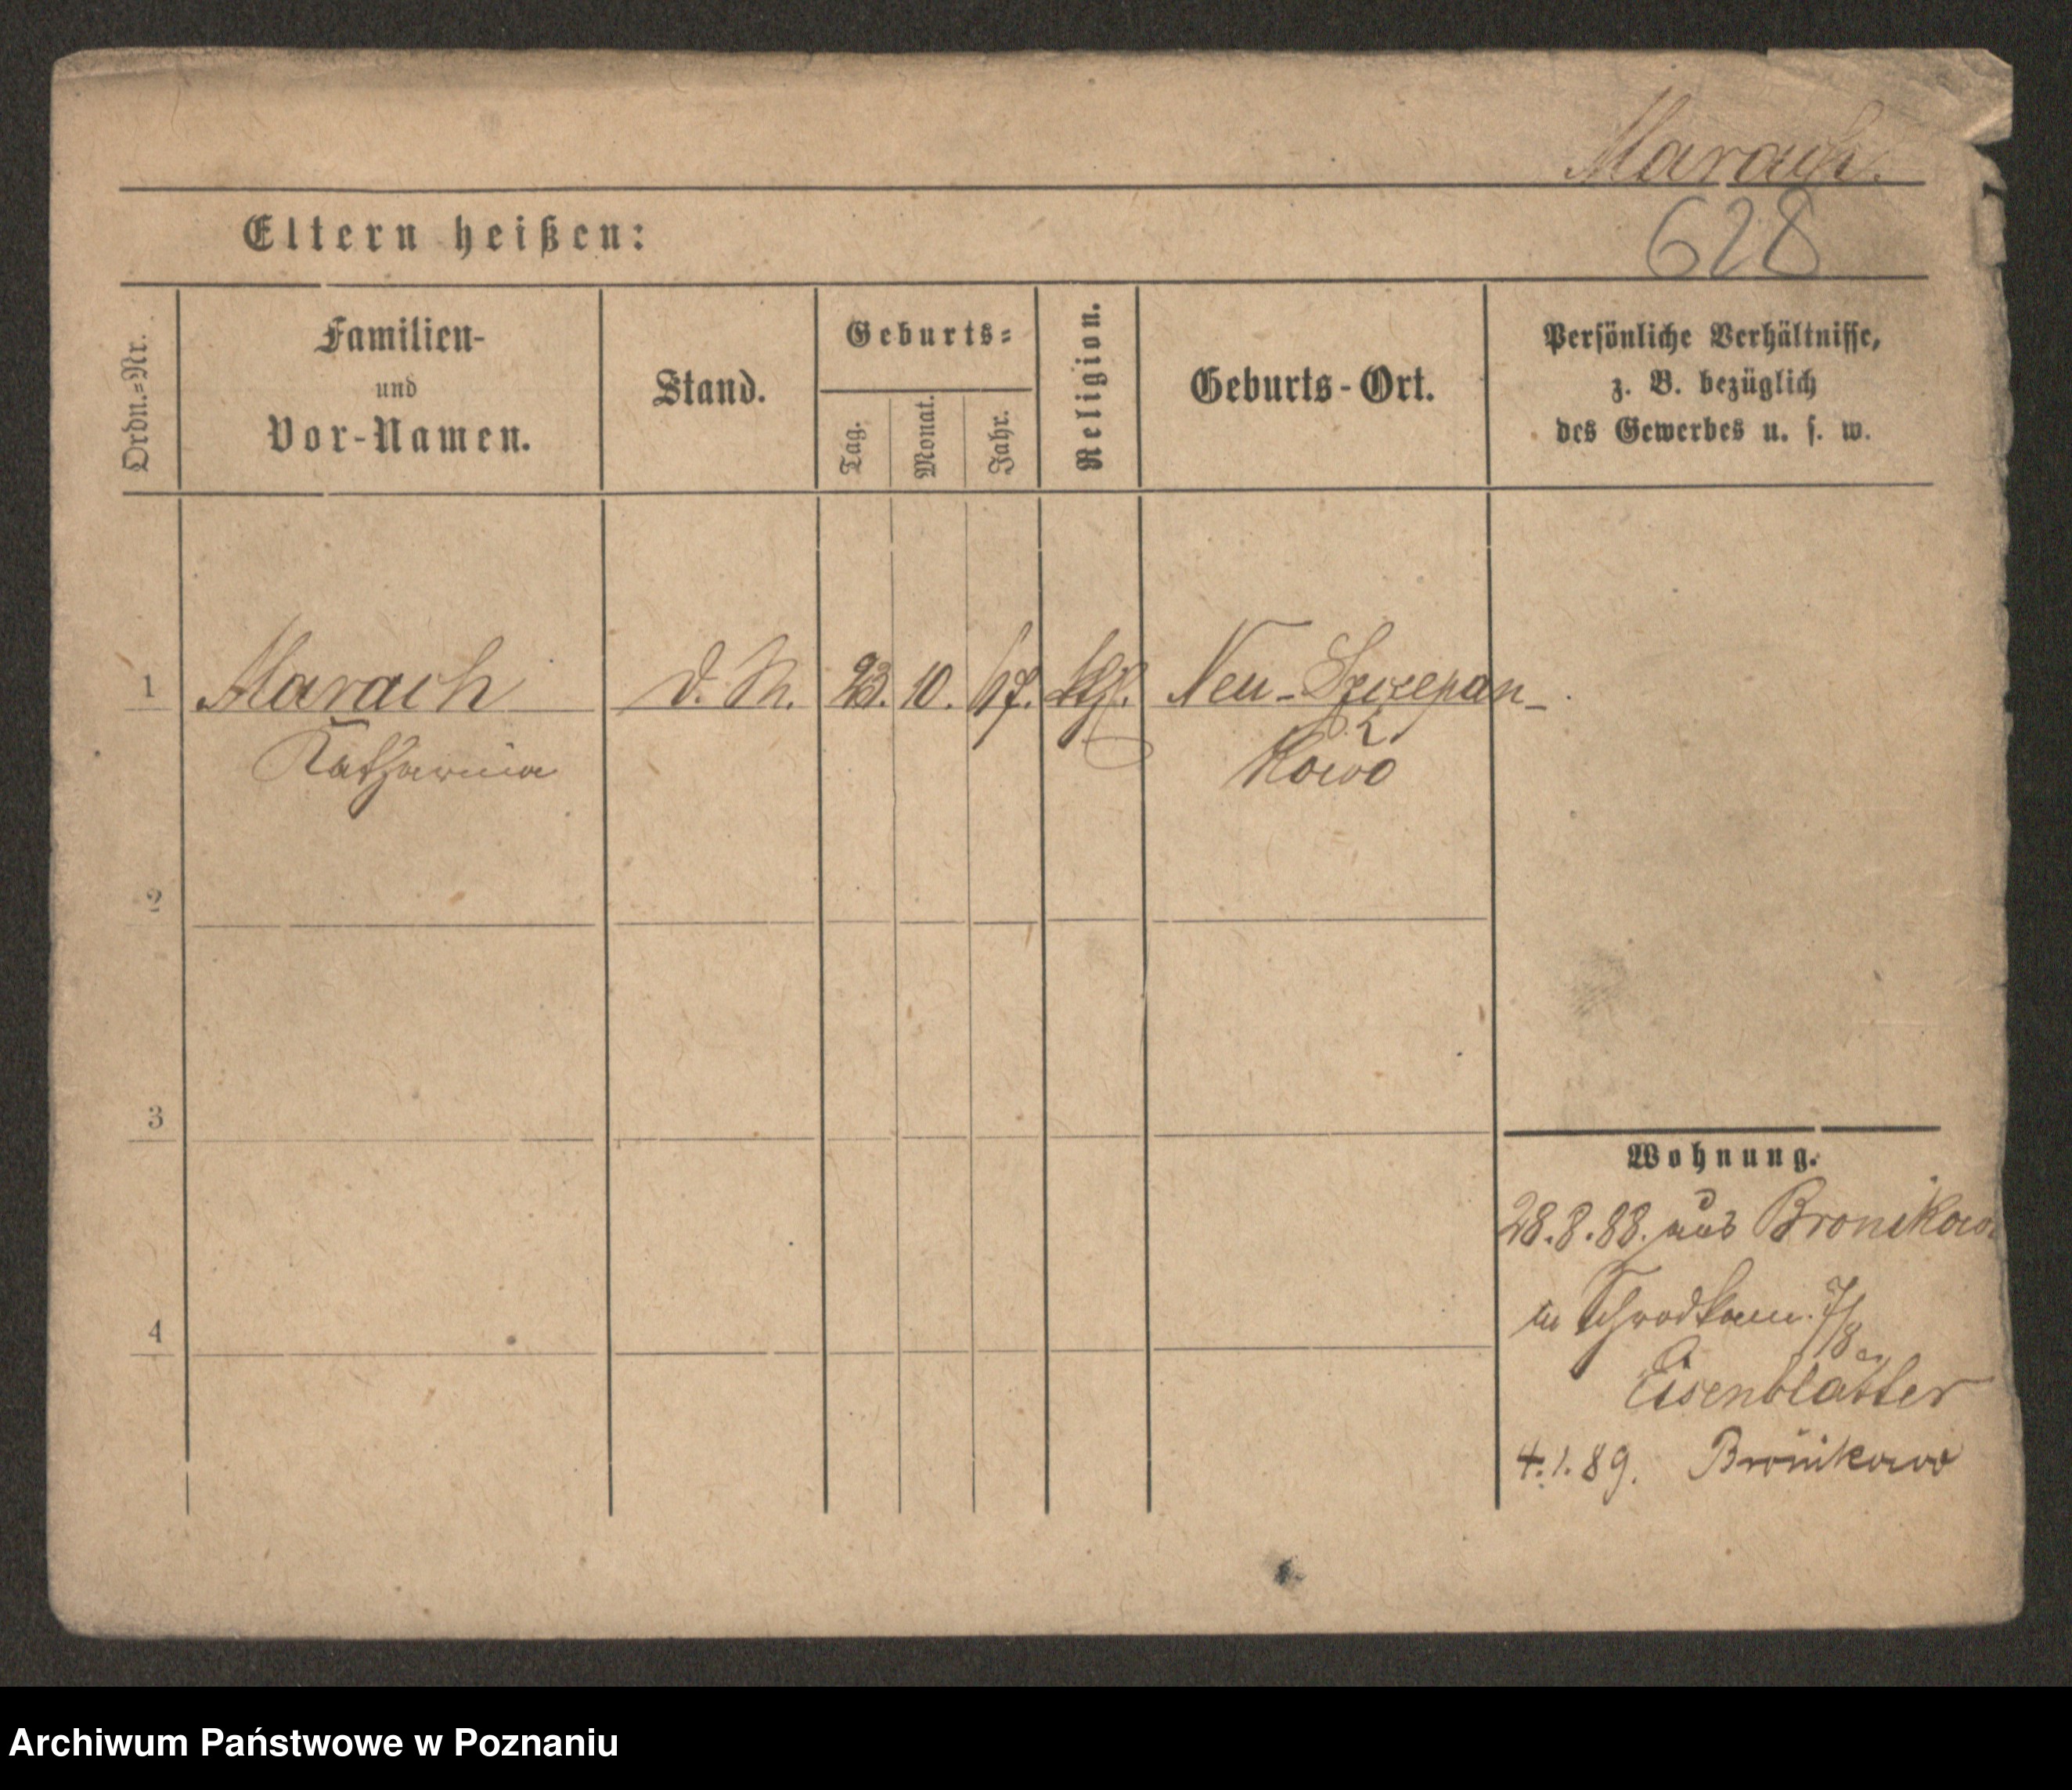 Marach.
Eltern heißen:
628
Ordn.=Nr.
Familien-
und
Vor-Namen.
Stand.
Geburts=
Tag.
Monat.
Jahr.
Religion.
Geburts-Ort.
Persönliche Verhältnisse,
z. B. bezüglich
des Gewerbes u. s. w.
1 Marach D. M. 23. 10. 67. Neu-Szczepan-
Katharina kowo
2
3
4
Wohnung.
28.8.88. aus Bronikowo
in 7/8
Eisenblätter
4.1.89. Bronikowo
Archiwum Państwowe w Poznaniu